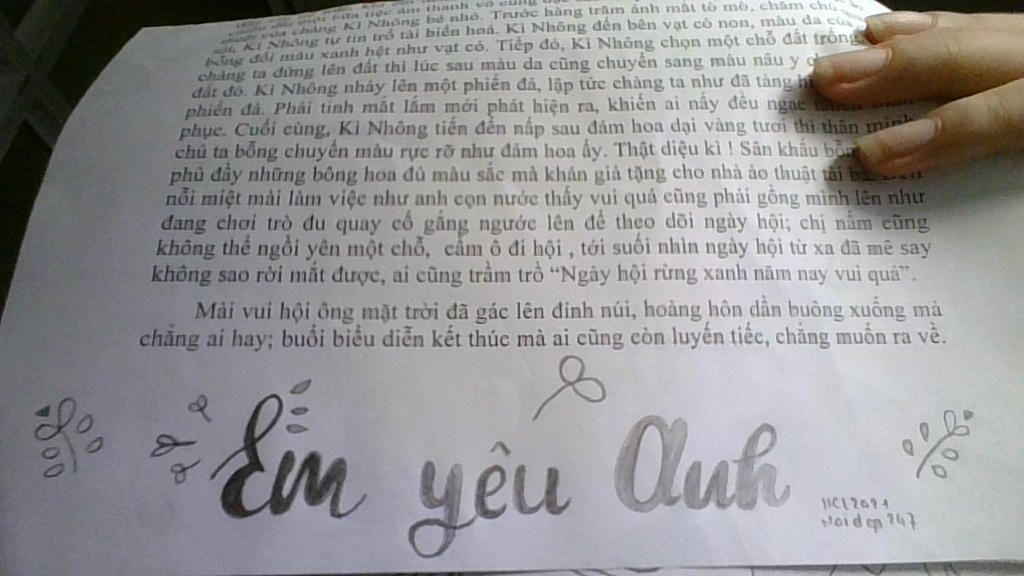 của chàng Kì Nhông bé nhỏ. Trước hàng trăm ánh mắt tò mò, chăm chú
Kì Nhông tự tin trổ tài biến hoá. Kì Nhông đến bên vạt cỏ non, màu da của
bỗng đổi màu xanh hệt như vạt cỏ. Tiếp đó, Kì Nhông chọn một chỗ đất trống
chàng ta đứng lên đất thì lúc sau màu da cũng chuyển sang màu nâu y
đất đó. Kì Nhông nhảy lên một phiến đá, lập tức chàng ta như đã tàng
phiến đá. Phải tinh mắt lắm mới phát hiện ra, khiến ai nấy đều ngạc nhiên
phục. Cuối cùng, Kì Nhông tiến đến nấp sau đám hoa dại vàng tươi thì thân mình
chú ta bỗng chuyển màu rực rỡ như đám hoa ấy. Thật diệu kì ! Sân khấu
phủ đầy những bông hoa đủ màu sắc mà khán giả tặng cho nhà ảo thuật tài ba. Đến
nỗi miệt mài làm việc như anh cọn nước thấy vui quá cũng phải gồng mình lên như
đang chơi trò đu quay cố gắng ngước lên để theo dõi ngày hội; chị nấm cũng
không thể ngồi yên một chỗ, cầm ô đi hội , tới suối nhìn ngày hội từ xa đã mê say
không sao rời mắt được, ai cũng trầm trồ “Ngày hội rừng xanh năm nay vui quá”.
Mải vui hội ông mặt trời đã gác lên đỉnh núi, hoàng hôn dần buông xuống mà
chẳng ai hay; buổi biểu diễn kết thúc mà ai cũng còn luyến tiếc, chẳng muốn ra về.
Em yêu Anh